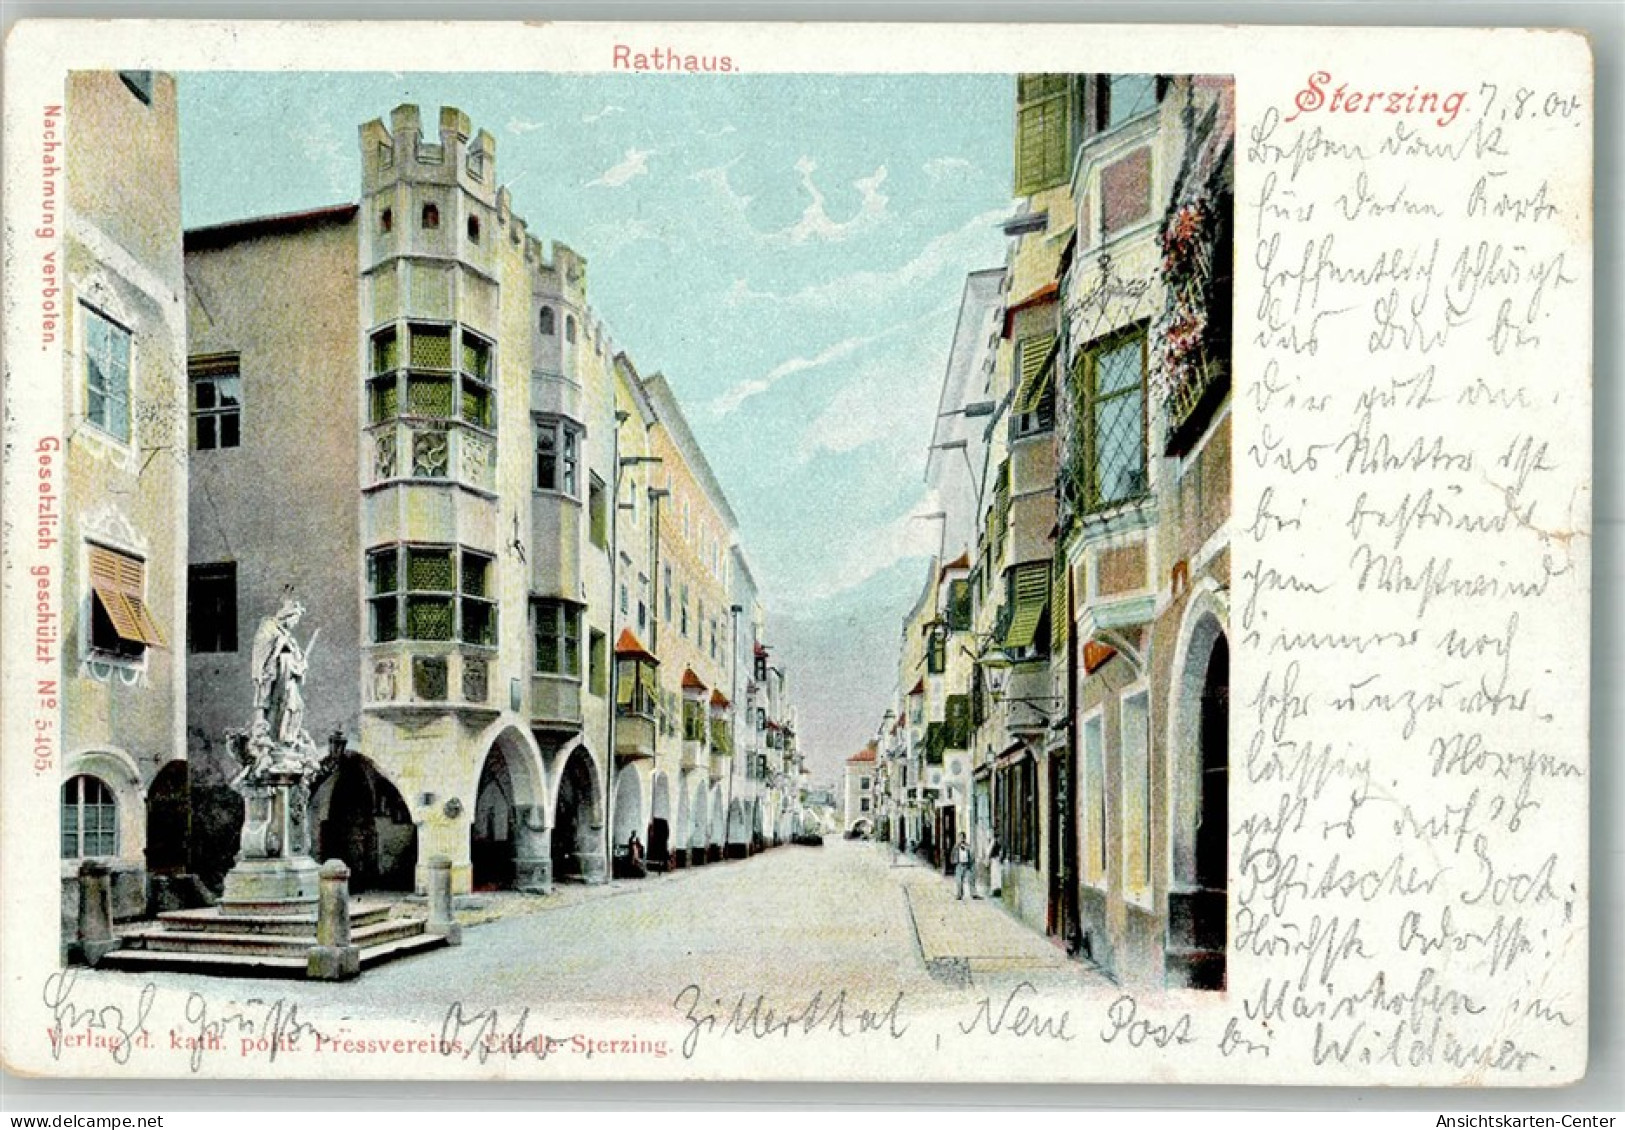 Rathaus.
Sterzing. 7.8.00.
Besten Dank
für Deine Karte
hoffentlich schlägt
das Bad bei
Dir gut an.
Das Wetter ist
bei beständi-
gem Westwind
immer noch
sehr unzuver-
lässig. Morgen
geht es auf's
Pfitscher Joch;
Nächste Adresse:
Mairhofen im
Zillerthal, Neue Post bei Wildauer.
Herzl Grüße Otto.
Verlag d. kath. polit. Pressvereins, Filiale Sterzing.
Nachahmung verboten. Gesetzlich geschützt No 5405.
Ansichtskarten-Center